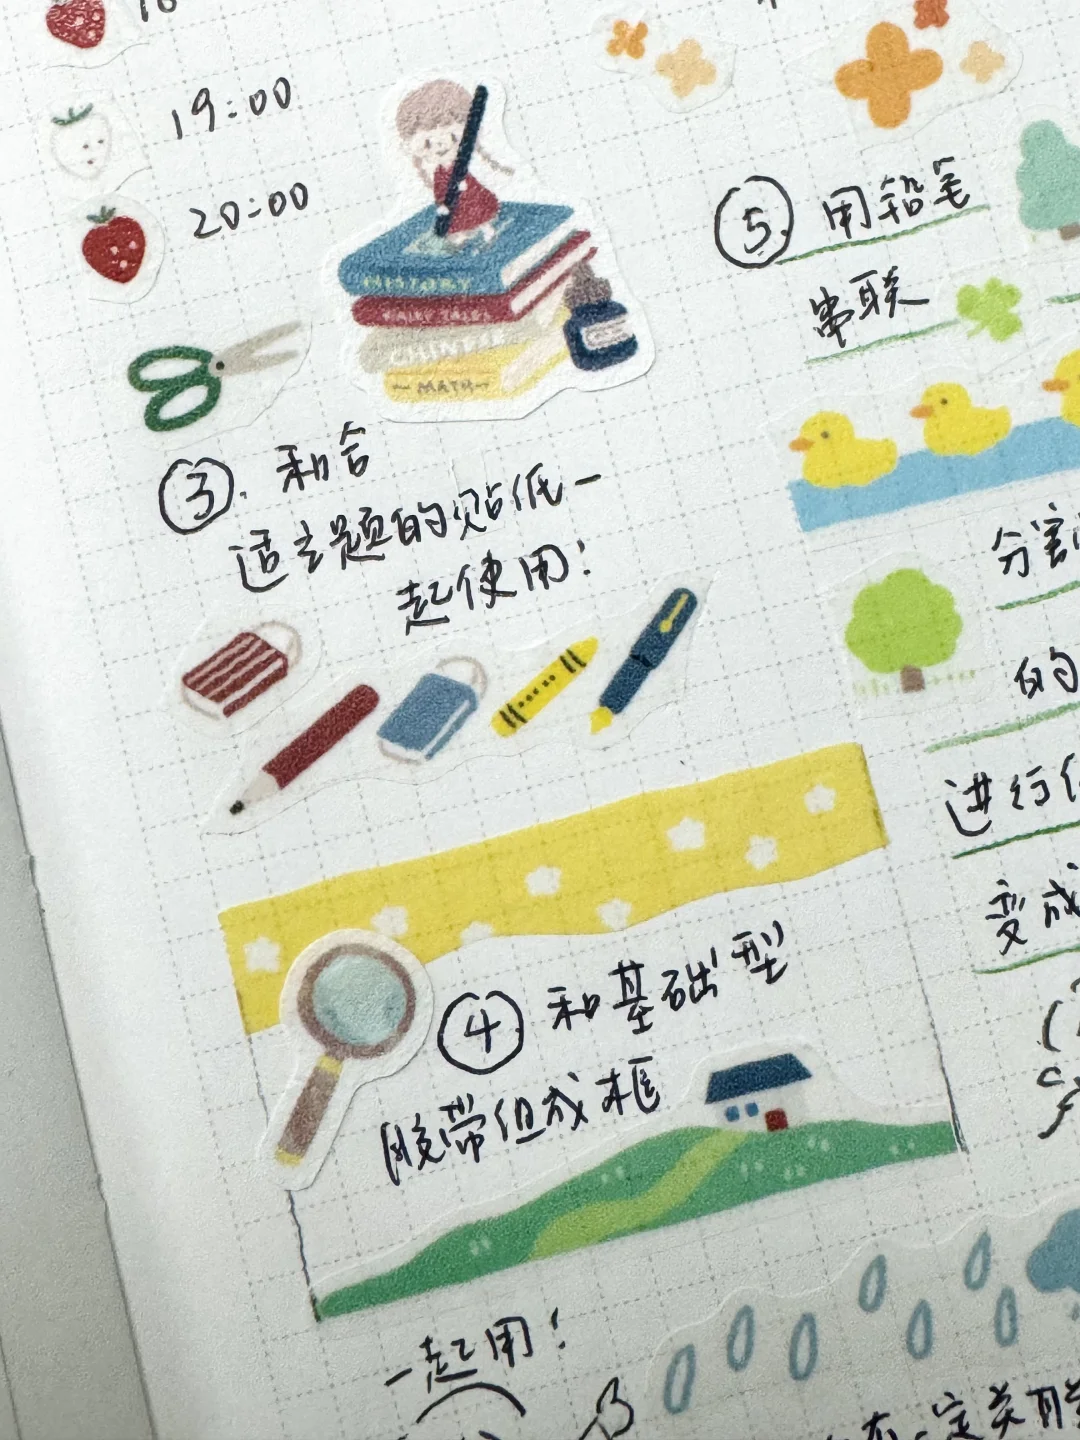 19:00
20:00
HISTORY
FAIRY TALES
CHINESE
MATH
③. 和合
适主题的贴低一
起使用!
④ 和基础型
胶带组成框
一起用!
⑤. 用铅笔
串联
分割
的
进行
变成